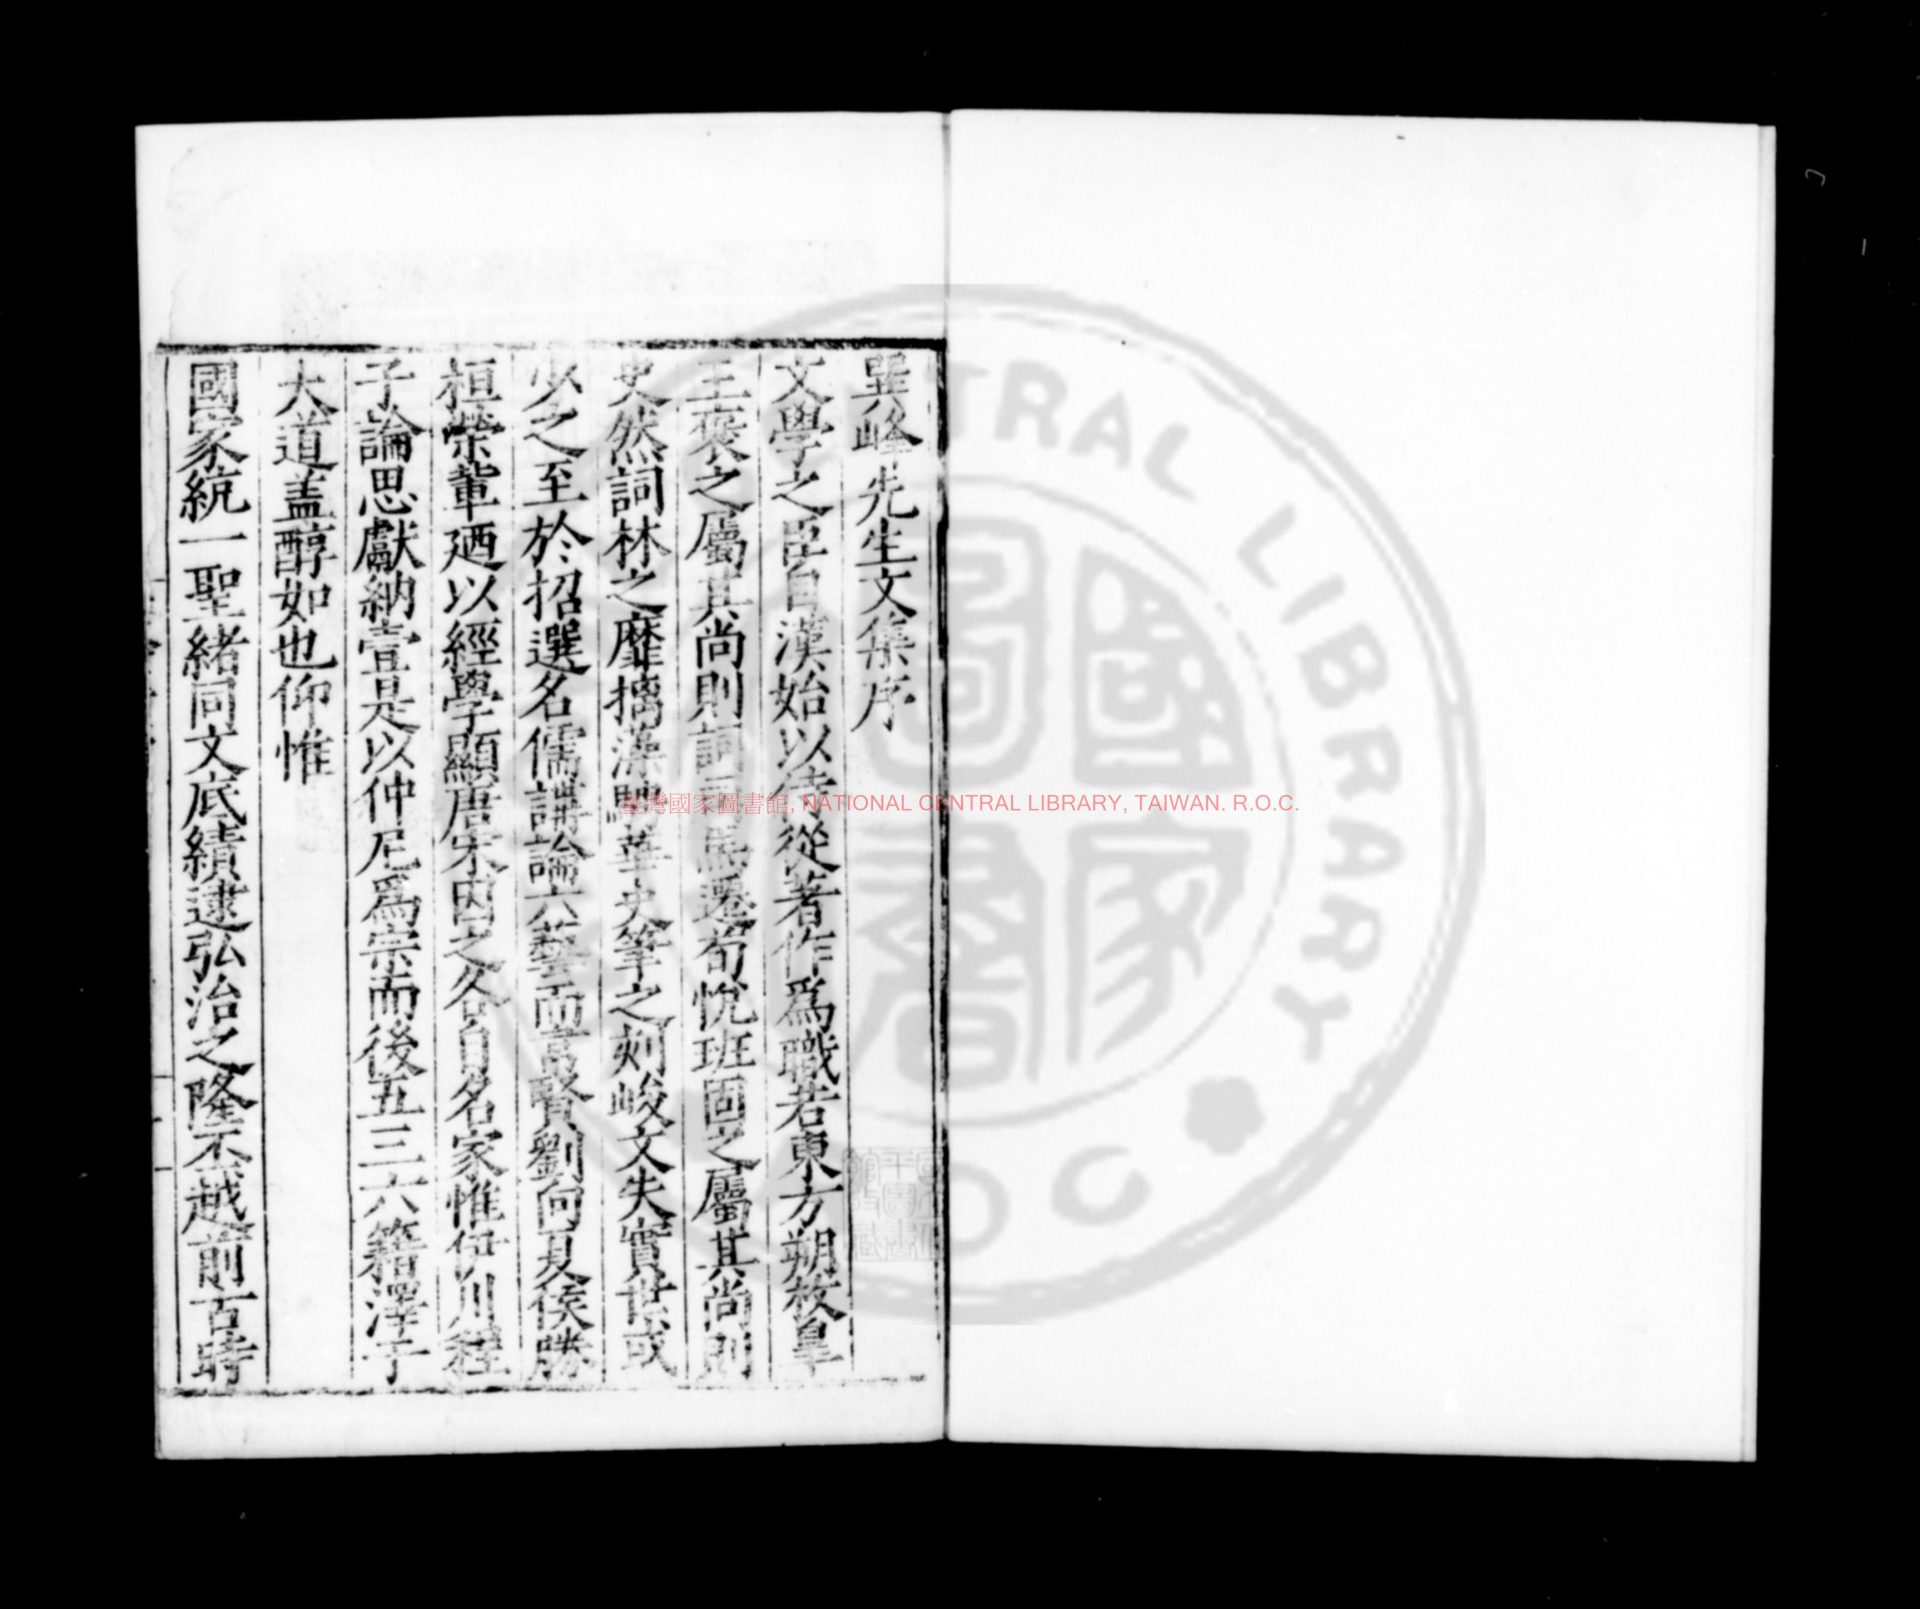 巽峰先生文集序
文學之臣自漢始以侍從著作爲職若東方朔枚皐
王褒之屬其尚則詞司馬遷荀悅班固之屬其尚則
史然詞林之靡摛藻馳華史筆之刻峻文失實世或
少之至於招選名儒講論六藝而高賢劉向夏侯勝
桓榮輩廼以經學顯唐宋因之各自名家惟伊川程
子論思獻納壹是以仲尼爲宗而後五三六籍澤于
大道盖醇如也仰惟
國家統一聖緒同文底績逮弘治之隆丕越前古時
臺灣國家圖書館, NATIONAL CENTRAL LIBRARY, TAIWAN. R.O.C.
國家圖書
CENTRAL LIBRARY